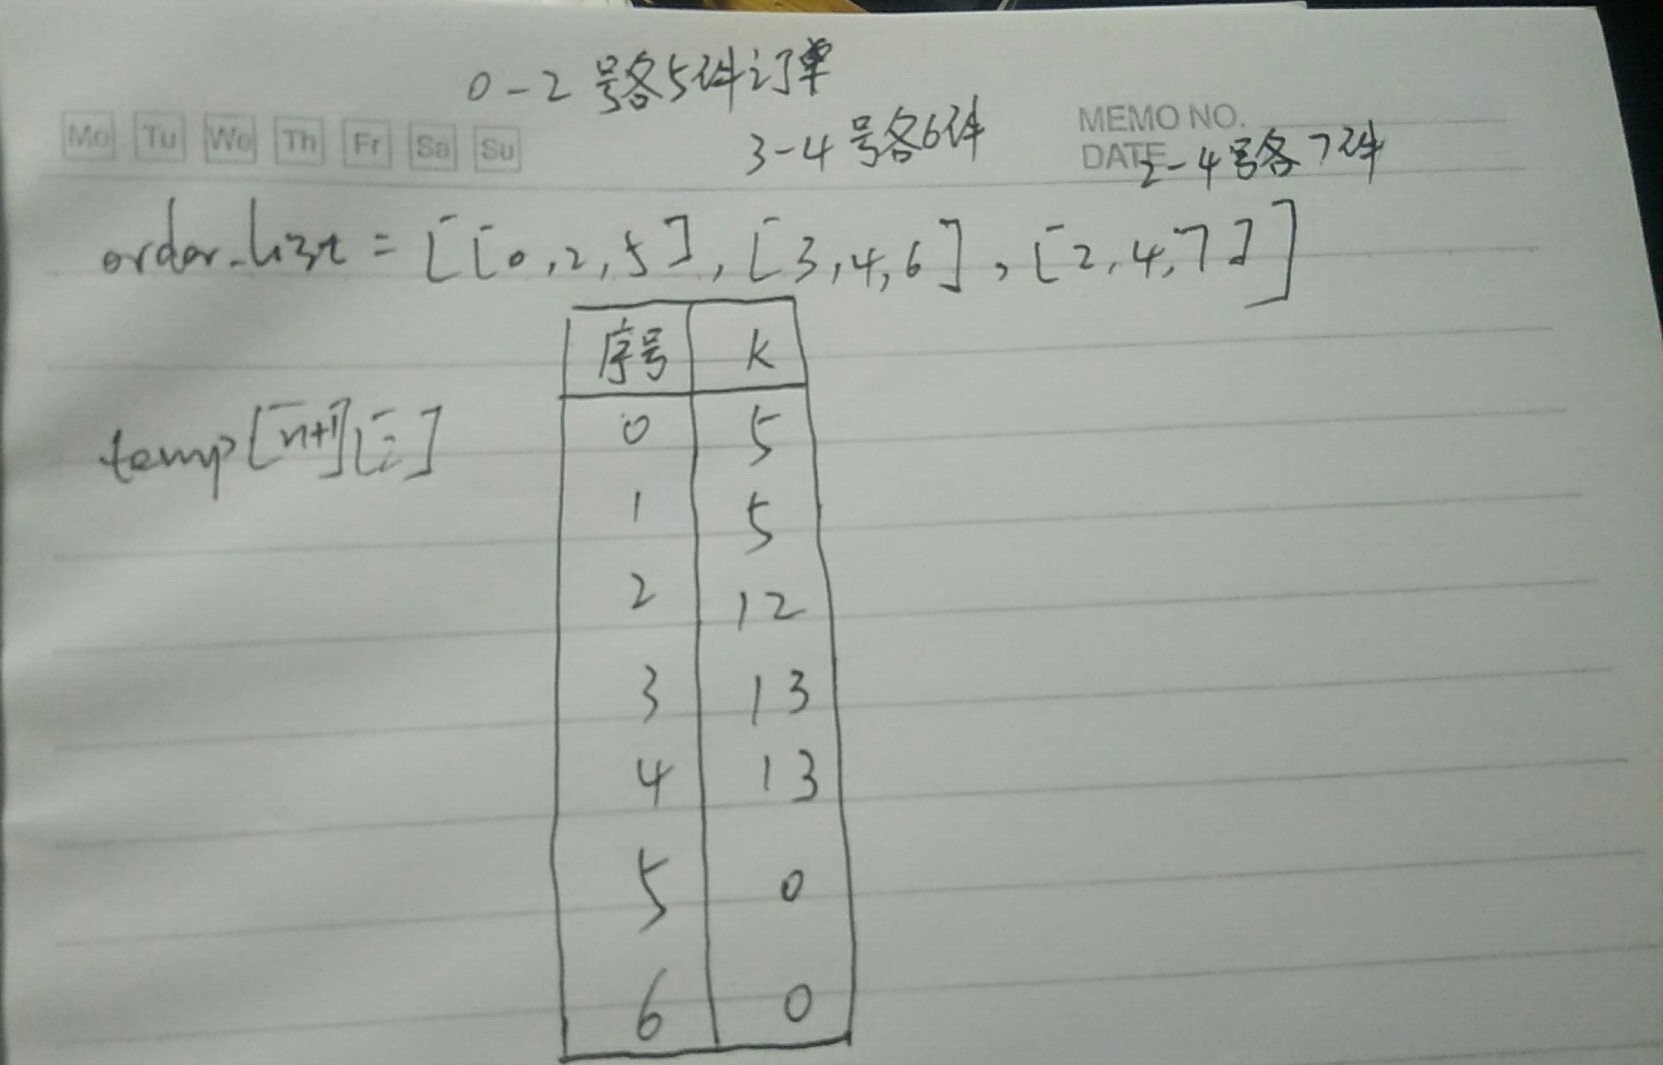 0-2号各5件订单
3-4号各6件
2-4号各7件
Mo Tu We Th Fr Sa Su
MEMO NO.
DATE
order_list = [[0,2,5],[3,4,6],[2,4,7]]
序号 k
temp[n+1][2]
0 5
1 5
2 12
3 13
4 13
5 0
6 0